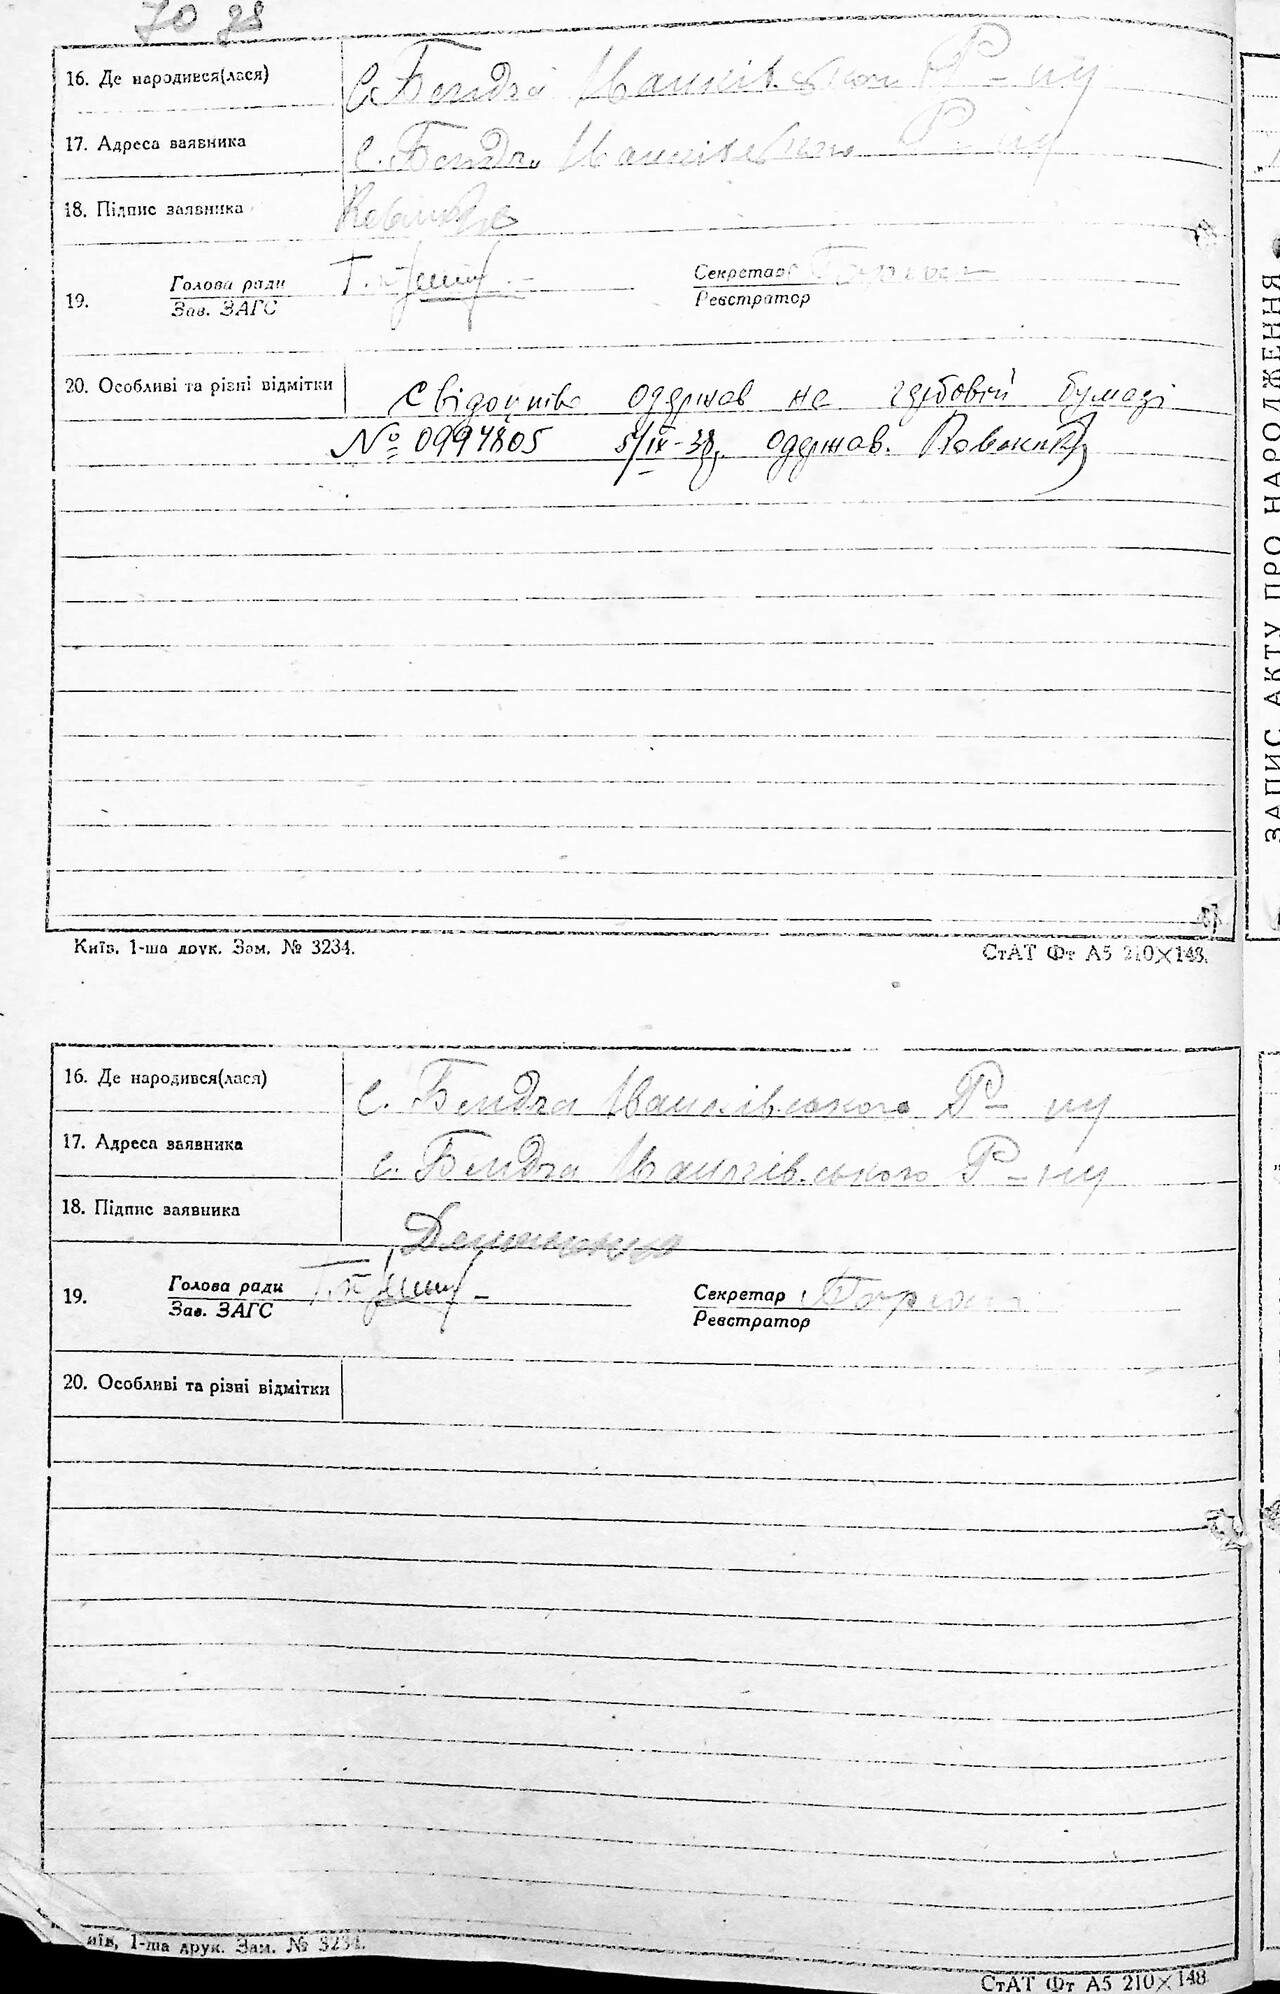 70 зв
16. Де народився(лася) с. Бендза Р-ну
17. Адреса заявника с. Бендза Р-ну
18. Підпис заявника
19. Голова ради
Зав. ЗАГС
Секретар
Реєстратор
20. Особливі та різні відмітки свідоцтво одержав на гербовій бумазі
№ 0994805 5/IX-38, одержав.
Київ. 1-ша друк. Зам. № 3234.
СтАТ Фт А5 210×148.
16. Де народився(лася) с. Бендза Р-ну
17. Адреса заявника с. Бендза Р-ну
18. Підпис заявника
19. Голова ради
Зав. ЗАГС
Секретар
Реєстратор
20. Особливі та різні відмітки
иїв, 1-ша друк. Зам. № 3234.
СтАТ Фт А5 210×148
ЗАПИС АКТУ ПРО НАРОДЖЕННЯ